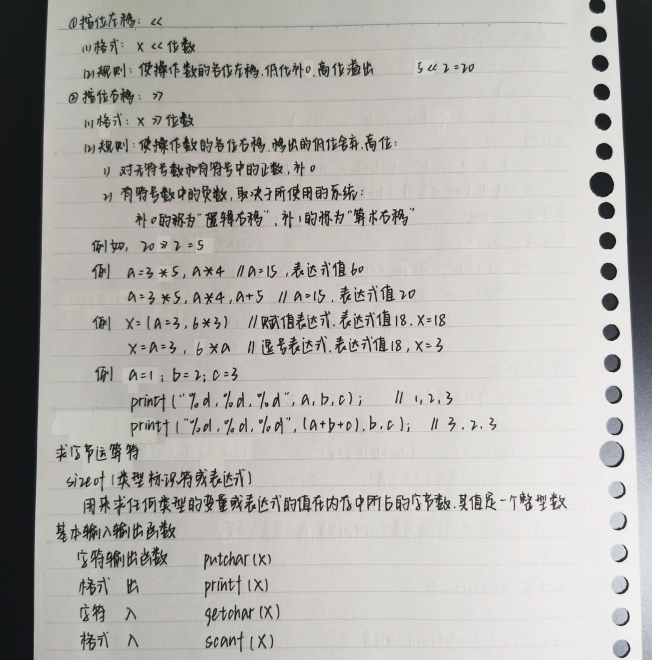 ①按位左移: <<
(1)格式: X << 位数
(2)规则: 使操作数的各位左移, 低位补0, 高位溢出 5<<2=20
②按位右移: >>
(1)格式: X >> 位数
(2)规则: 使操作数的各位右移, 移出的低位舍弃, 高位:
1) 对无符号数和有符号中的正数, 补0
2) 有符号数中的负数, 取决于所使用的系统:
补0的称为"逻辑右移", 补1的称为"算术右移"
例如, 20>>2=5
例 a=3*5, a*4 //a=15, 表达式值60
a=3*5, a*4, a+5 //a=15, 表达式值20
例 X=(a=3, 6*3) //赋值表达式, 表达式值18, X=18
X=a=3, 6*a //逗号表达式, 表达式值18, X=3
例 a=1; b=2; c=3
printf("%d,%d,%d", a,b,c); //1,2,3
printf("%d,%d,%d", (a+b+c),b,c); //3,2,3
求字节运算符
sizeof(类型标识符或表达式)
用来求任何类型的变量或表达式的值在内存中所占的字节数, 其值是一个整型数
基本输入输出函数
字符输出函数 putchar(X)
格式 出 printf(X)
字符 入 getchar(X)
格式 入 scanf(X)